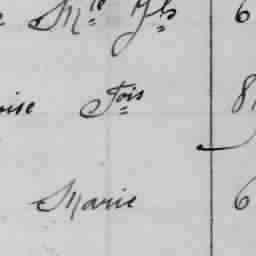 Mie Jh 6
oise Fois 8
Marie 6